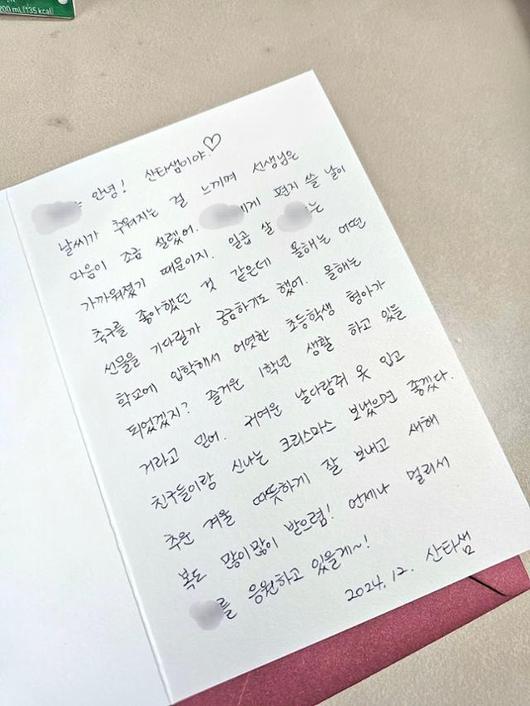 200 ml (135 kcal)
안녕! 산타샘이야♡
날씨가 추워지는 걸 느끼며 선생님은
마음이 조금 설렜어. 에게 편지 쓸 날이
가까워졌기 때문이지. 일곱 살 는
축구를 좋아했던 것 같은데 올해는 어떤
선물을 기다릴까 궁금하기도 했어. 올해는
학교에 입학해서 어엿한 초등학생 형아가
되었겠지? 즐거운 1학년 생활 하고 있을
거라고 믿어. 귀여운 날다람쥐 옷 입고
친구들이랑 신나는 크리스마스 보냈으면 좋겠다.
추운 겨울 따뜻하게 잘 보내고 새해
복도 많이많이 받으렴! 언제나 멀리서
를 응원하고 있을게~!
2024. 12. 산타샘